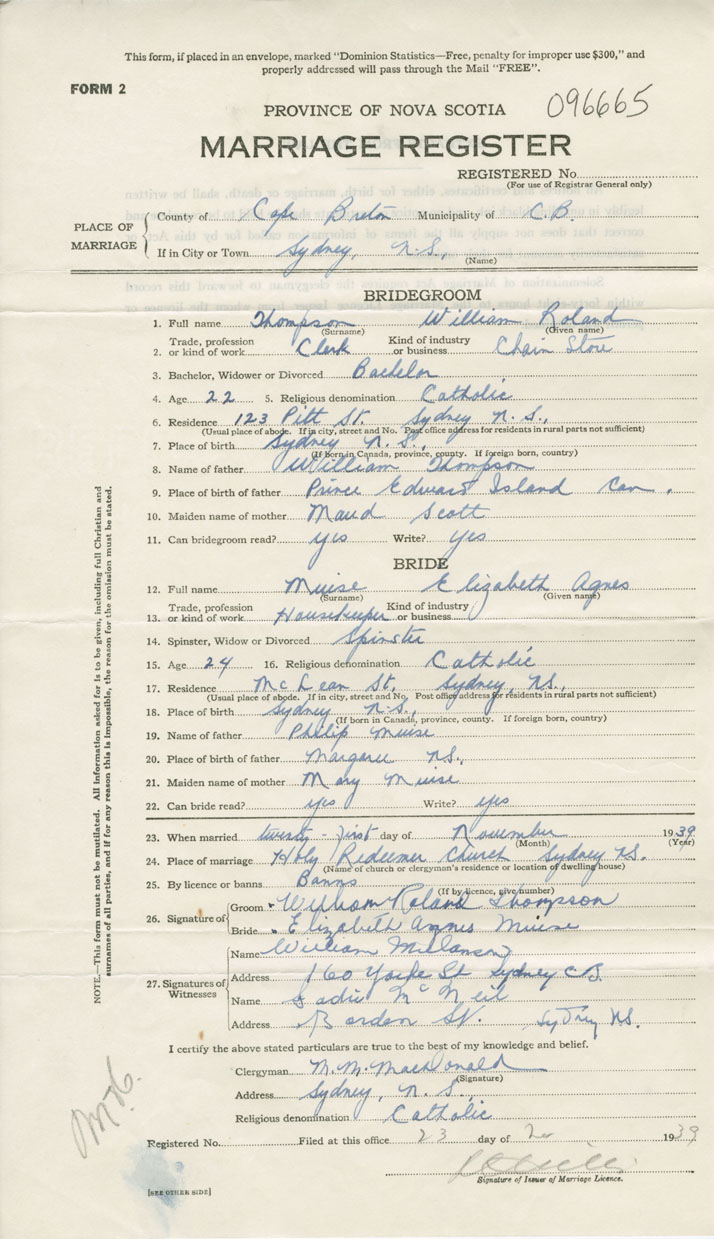 This form, if placed in an envelope, marked "Dominion Statistics—Free, penalty for improper use $300," and
properly addressed will pass through the Mail "FREE".
FORM 2
PROVINCE OF NOVA SCOTIA 096665
MARRIAGE REGISTER
REGISTERED No.
(For use of Registrar General only)
PLACE OF MARRIAGE
County of Cape Breton Municipality of C.B.
If in City or Town Sydney, N.S.,
(Name)
BRIDEGROOM
1. Full name Thompson William Roland
(Surname) (Given name)
2. Trade, profession or kind of work Clerk Kind of industry or business Chain Store
3. Bachelor, Widower or Divorced Bachelor
4. Age 22 5. Religious denomination Catholic
6. Residence 123 Pitt St. Sydney N.S.,
(Usual place of abode. If in city, street and No. Post office address for residents in rural parts not sufficient)
7. Place of birth Sydney N.S.,
(If born in Canada, province, county. If foreign born, country)
8. Name of father William Thompson
9. Place of birth of father Prince Edward Island Can.
10. Maiden name of mother Maud Scott
11. Can bridegroom read? yes Write? yes
BRIDE
12. Full name Muise Elizabeth Agnes
(Surname) (Given name)
13. Trade, profession or kind of work Housekeeper Kind of industry or business
14. Spinster, Widow or Divorced Spinster
15. Age 24 16. Religious denomination Catholic
17. Residence McLean St. Sydney, N.S.,
(Usual place of abode. If in city, street and No. Post office address for residents in rural parts not sufficient)
18. Place of birth Sydney N.S.,
(If born in Canada, province, county. If foreign born, country)
19. Name of father Philip Muise
20. Place of birth of father Margaree N.S.,
21. Maiden name of mother Mary Muise
22. Can bride read? yes Write? yes
23. When married twenty-first day of November 1939
(Month) (Year)
24. Place of marriage Holy Redeemer Church Sydney N.S.
(Name of church or clergyman's residence or location of dwelling house)
25. By licence or banns Banns
(If by licence, give number)
26. Signature of
Groom William Roland Thompson
Bride Elizabeth Agnes Muise
27. Signatures of Witnesses
Name William Melanson
Address 160 Yorke St Sydney C.B.
Name Sadie McNeil
Address Borden St. Sydney N.S.
I certify the above stated particulars are true to the best of my knowledge and belief.
Clergyman M.M. MacDonald
(Signature)
Address Sydney, N.S.,
Religious denomination Catholic
Registered No. Filed at this office 23 day of 1939
Signature of Issuer of Marriage Licence.
[SEE OTHER SIDE]
NOTE.—This form must not be mutilated. All information asked for is to be given, including full Christian and
surnames of all parties, and if for any reason this is impossible, the reason for the omission must be stated.